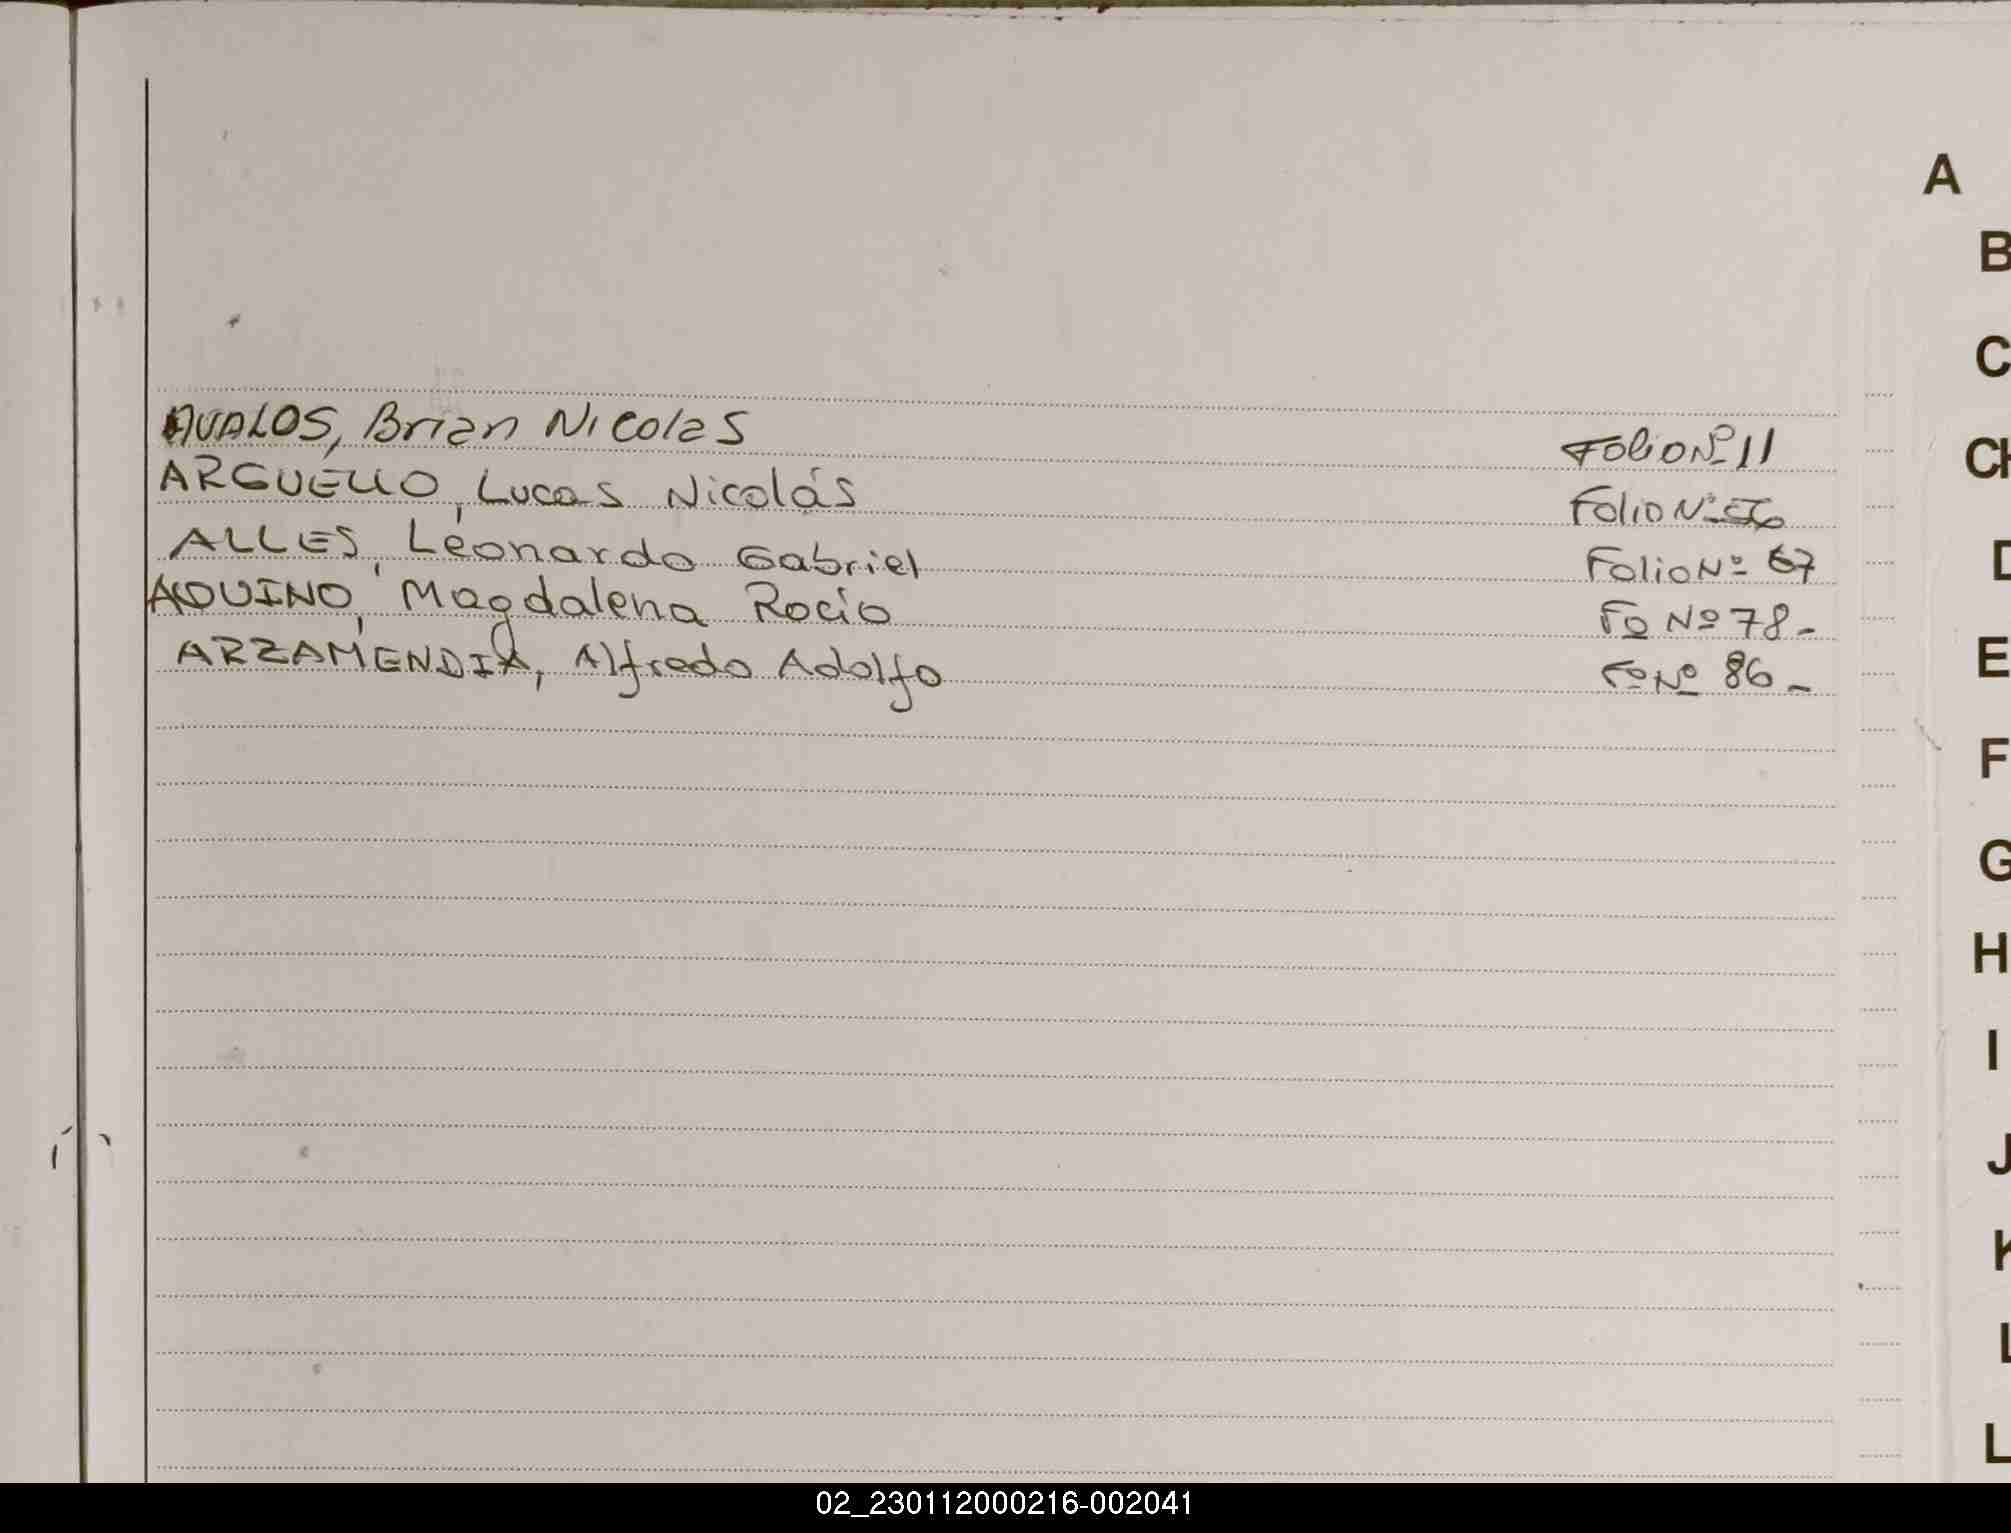 A
B
C
AVALOS, Brian Nicolas Folio Nº 11
CH
ARGUELLO, Lucas Nicolás Folio Nº 56
ALLES, Leonardo Gabriel Folio Nº 67
D
AQUINO, Magdalena Rocío Fº Nº 78-
ARZAMENDIA, Alfredo Adolfo Fº Nº 86-
E
F
G
H
I
J
K
L
L
02_230112000216-002041